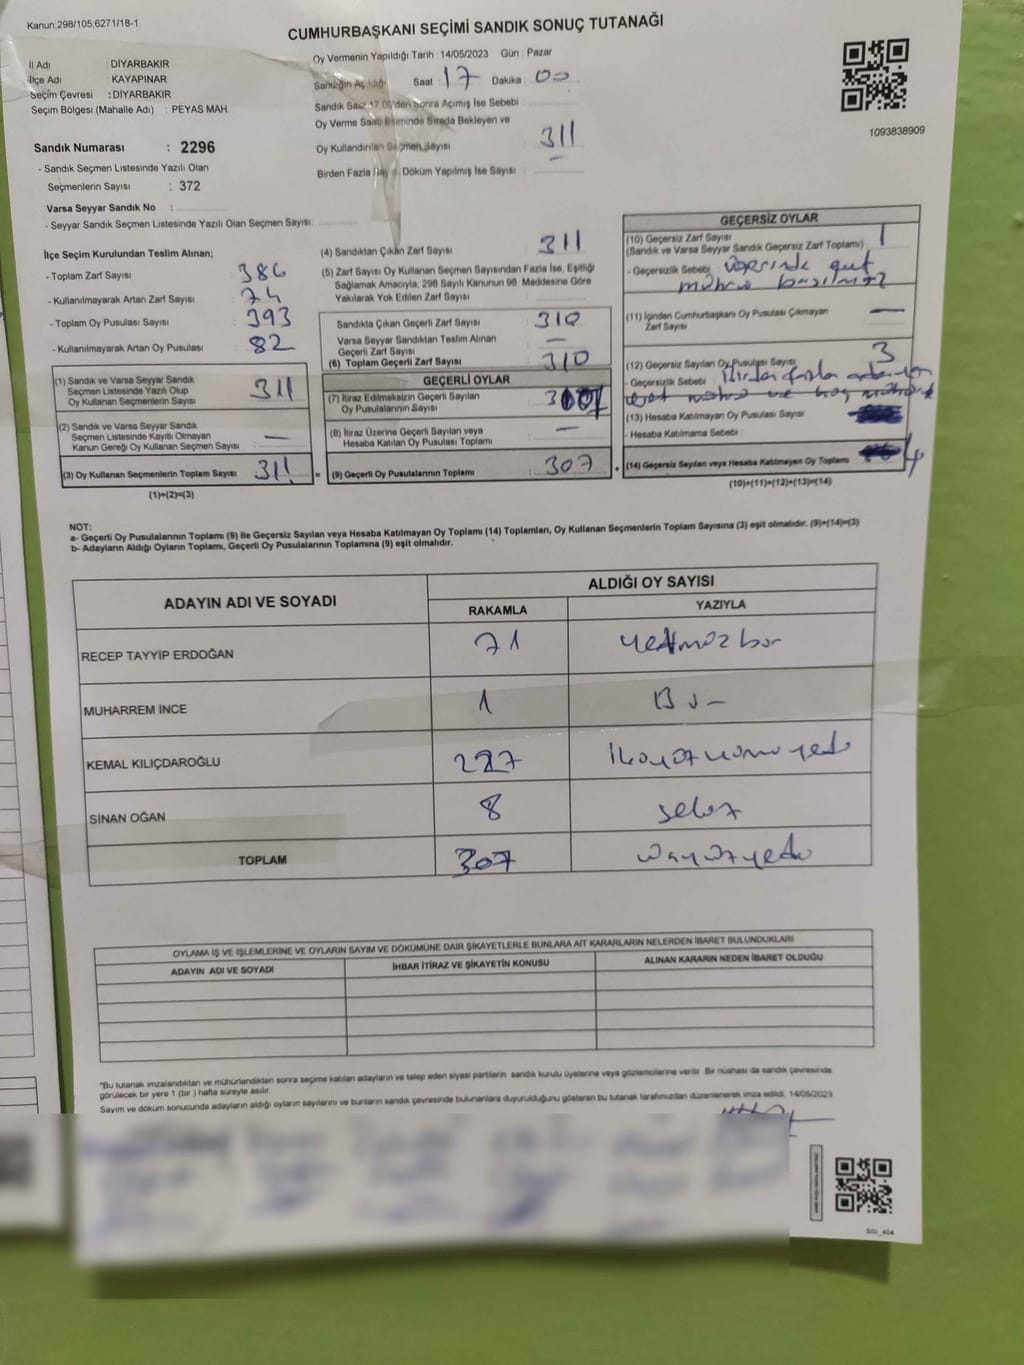 Kanun:298/105,6271/18-1
CUMHURBAŞKANI SEÇİMİ SANDIK SONUÇ TUTANAĞI
İl Adı : DİYARBAKIR
İlçe Adı : KAYAPINAR
Seçim Çevresi : DİYARBAKIR
Seçim Bölgesi (Mahalle Adı) : PEYAS MAH.
Sandık Numarası : 2296
- Sandık Seçmen Listesinde Yazılı Olan
Seçmenlerin Sayısı : 372
Varsa Seyyar Sandık No :
- Seyyar Sandık Seçmen Listesinde Yazılı Olan Seçmen Sayısı:
Oy Vermenin Yapıldığı Tarih : 14/05/2023 Gün : Pazar
Sandığın Açıldığı Saat : 17 Dakika : 00
Sandık Saat 17.00'den Sonra Açımış İse Sebebi :
Oy Verme Saati Bitiminde Sırada Bekleyen ve
Oy Kullandırılan Seçmen Sayısı : 311
Birden Fazla Sayım Döküm Yapılmış İse Sayısı :
1093838909
İlçe Seçim Kurulundan Teslim Alınan;
- Toplam Zarf Sayısı : 386
- Kullanılmayarak Artan Zarf Sayısı : 74
- Toplam Oy Pusulası Sayısı : 393
- Kullanılmayarak Artan Oy Pusulası : 82
(1) Sandık ve Varsa Seyyar Sandık
Seçmen Listesinde Yazılı Olup
Oy Kullanan Seçmenlerin Sayısı : 311
(2) Sandık ve Varsa Seyyar Sandık
Seçmen Listesinde Kayıtlı Olmayan
Kanun Gereği Oy Kullanan Seçmen Sayısı : —
(3) Oy Kullanan Seçmenlerin Toplam Sayısı : 311
(1)+(2)=(3)
(4) Sandıktan Çıkan Zarf Sayısı : 311
(5) Zarf Sayısı Oy Kullanan Seçmen Sayısından Fazla İse, Eşitliği
Sağlamak Amacıyla, 298 Sayılı Kanunun 98. Maddesine Göre
Yakılarak Yok Edilen Zarf Sayısı :
Sandıkta Çıkan Geçerli Zarf Sayısı : 310
Varsa Seyyar Sandıktan Teslim Alınan
Geçerli Zarf Sayısı : —
(6) Toplam Geçerli Zarf Sayısı : 310
GEÇERLİ OYLAR
(7) İtiraz Edilmeksizin Geçerli Sayılan
Oy Pusulalarının Sayısı : 307
(8) İtiraz Üzerine Geçerli Sayılan veya
Hesaba Katılan Oy Pusulası Toplamı : —
(9) Geçerli Oy Pusulalarının Toplamı : 307
GEÇERSİZ OYLAR
(10) Geçersiz Zarf Sayısı : 1
(Sandık ve Varsa Seyyar Sandık Geçersiz Zarf Toplamı)
- Geçersizlik Sebebi : üzerinde
mührü
(11) İçinden Cumhurbaşkanı Oy Pusulası Çıkmayan
Zarf Sayısı : —
(12) Geçersiz Sayılan Oy Pusulası Sayısı : 3
- Geçersizlik Sebebi : Birden fazla
(13) Hesaba Katılmayan Oy Pusulası Sayısı :
- Hesaba Katılmama Sebebi :
(14) Geçersiz Sayılan veya Hesaba Katılmayan Oy Toplamı : 4
(10)+(11)+(12)+(13)=(14)
NOT:
a- Geçerli Oy Pusulalarının Toplamı (9) ile Geçersiz Sayılan veya Hesaba Katılmayan Oy Toplamı (14) Toplamları, Oy Kullanan Seçmenlerin Toplam Sayısına (3) eşit olmalıdır. (9)+(14)=(3)
b- Adayların Aldığı Oyların Toplamı, Geçerli Oy Pusulalarının Toplamına (9) eşit olmalıdır.
ADAYIN ADI VE SOYADI ALDIĞI OY SAYISI
RAKAMLA YAZIYLA
RECEP TAYYİP ERDOĞAN 71 yetmişbir
MUHARREM İNCE 1 Bir
KEMAL KILIÇDAROĞLU 227 ikiyüzyirmiyedi
SİNAN OĞAN 8 sekiz
TOPLAM 307 üçyüzyedi
OYLAMA İŞ VE İŞLEMLERİNE VE OYLARIN SAYIM VE DÖKÜMÜNE DAİR ŞİKAYETLERLE BUNLARA AİT KARARLARIN NELERDEN İBARET BULUNDUKLARI
ADAYIN ADI VE SOYADI İHBAR İTİRAZ VE ŞİKAYETİN KONUSU ALINAN KARARIN NEDEN İBARET OLDUĞU
"Bu tutanak imzalandıktan ve mühürlendikten sonra seçime katılan adayların ve talep eden siyasi partilerin sandık kurulu üyelerine veya gözlemcilerine verilir. Bir nüshası da sandık çevresinde
görülecek bir yere 1 (bir ) hafta süreyle asılır.
Sayım ve döküm sonucunda adayların aldığı oyların sayılarını ve bunların sandık çevresinde bulunanlara duyurulduğunu gösteren bu tutanak tarafımızdan düzenlenerek imza edildi. 14/05/2023